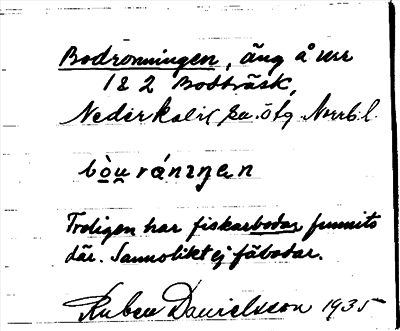 Bodronningen, äng å urr
1 & 2 Bodträsk,
Nederkalix sn. ötg Norrb. l.
bo̱u̯ránıŋen
Troligen har fiskarbodar funnits
där. Sannolikt ej fäbodar.
Ruben Danielsson 1935